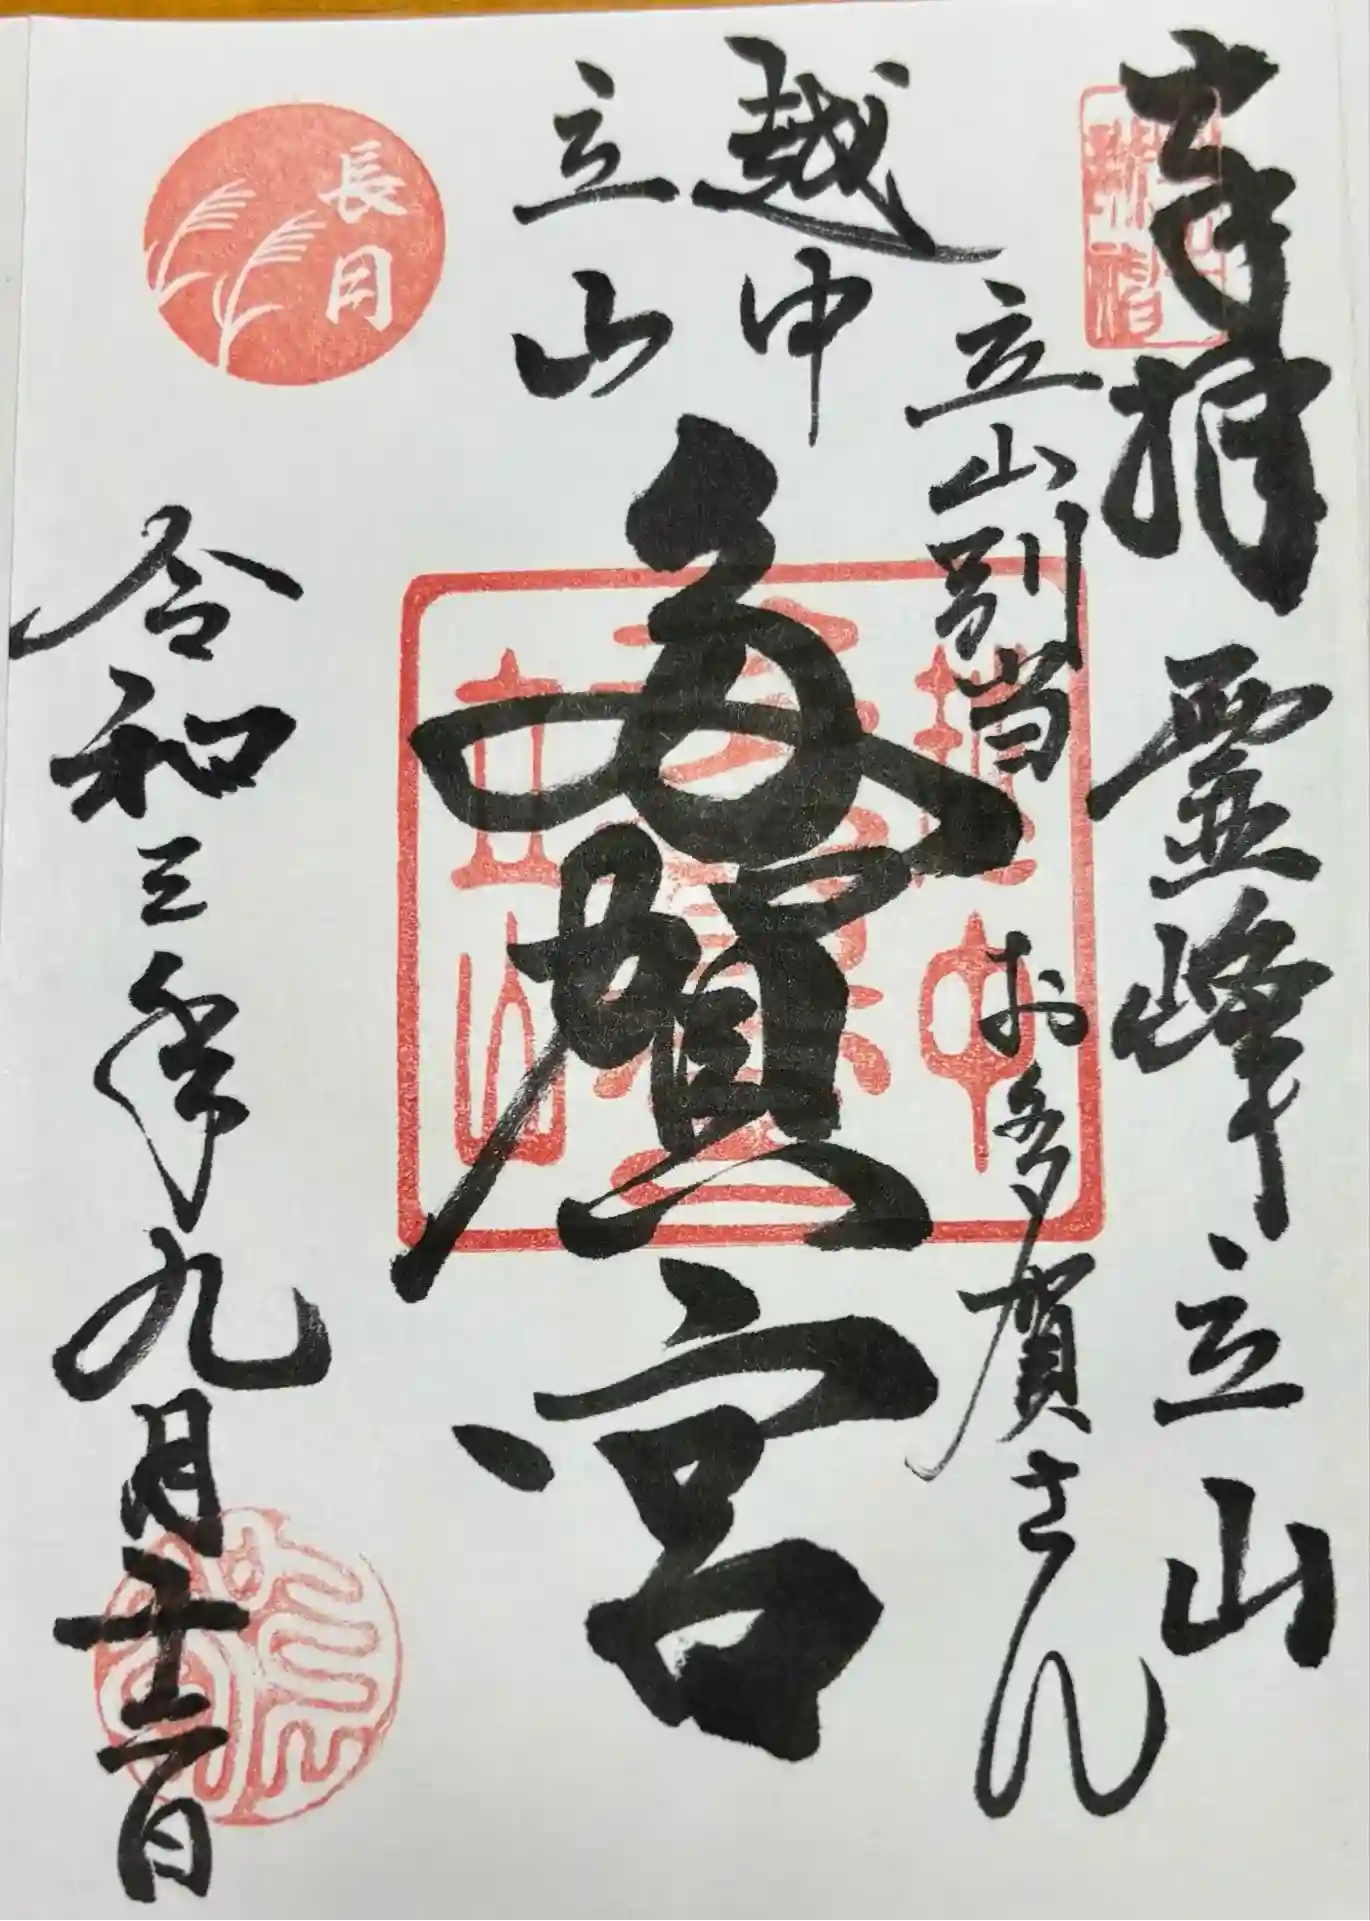 奉拝 霊峰 立山
立山別当 お多賀さん
越中
立山
多賀宮
長月
令和三年九月十二日
越中
多賀宮
立山